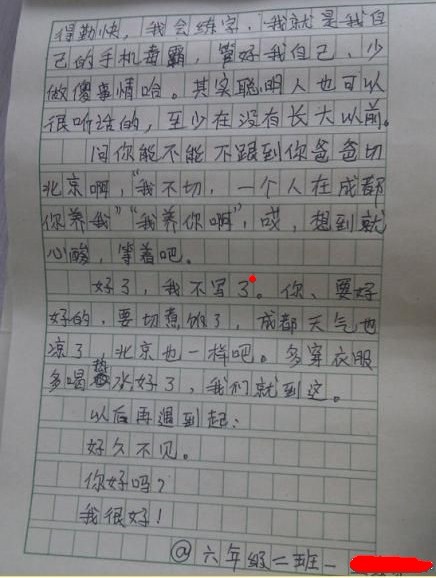 得勤快，我会练字，我就是我自
己的手机毒霸，管好我自己、少
做傻事情哈。其实聪明人也可以
很听话的，至少在没有长大以前。
问你能不能不跟到你爸爸切
北京啊，“我不切，一个人在成都
你养我”“我养你啊”，哎，想到就
心酸，等着吧。
好了，我不写了。你、要好
好的，要切煮饭了，成都天气也
凉了，北京也一样吧。多穿衣服
多喝热水好了，我们就到这。
以后再遇到起：
好久不见。
你好吗？
我很好！
@六年级二班一